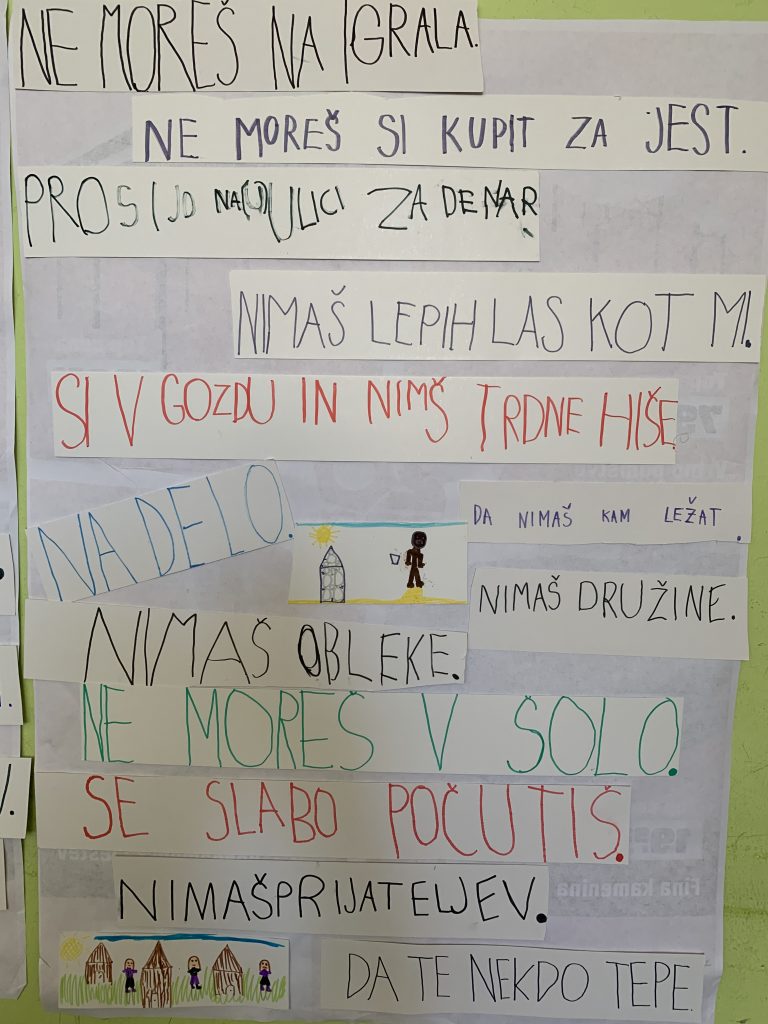 NE MOREŠ NA IGRALA.
NE MOREŠ SI KUPIT ZA JEST.
PROSIJO NA(U)ULICI ZA DENAR.
NIMAŠ LEPIH LAS KOT MI.
SI V GOZDU IN NIMŠ TRDNE HIŠE.
NA DELO.
DA NIMAŠ KAM LEŽAT.
NIMAŠ DRUŽINE.
NIMAŠ OBLEKE.
NE MOREŠ V ŠOLO.
SE SLABO POČUTIŠ.
NIMAŠ PRIJATELJEV.
DA TE NEKDO TEPE.
Fina kamenina